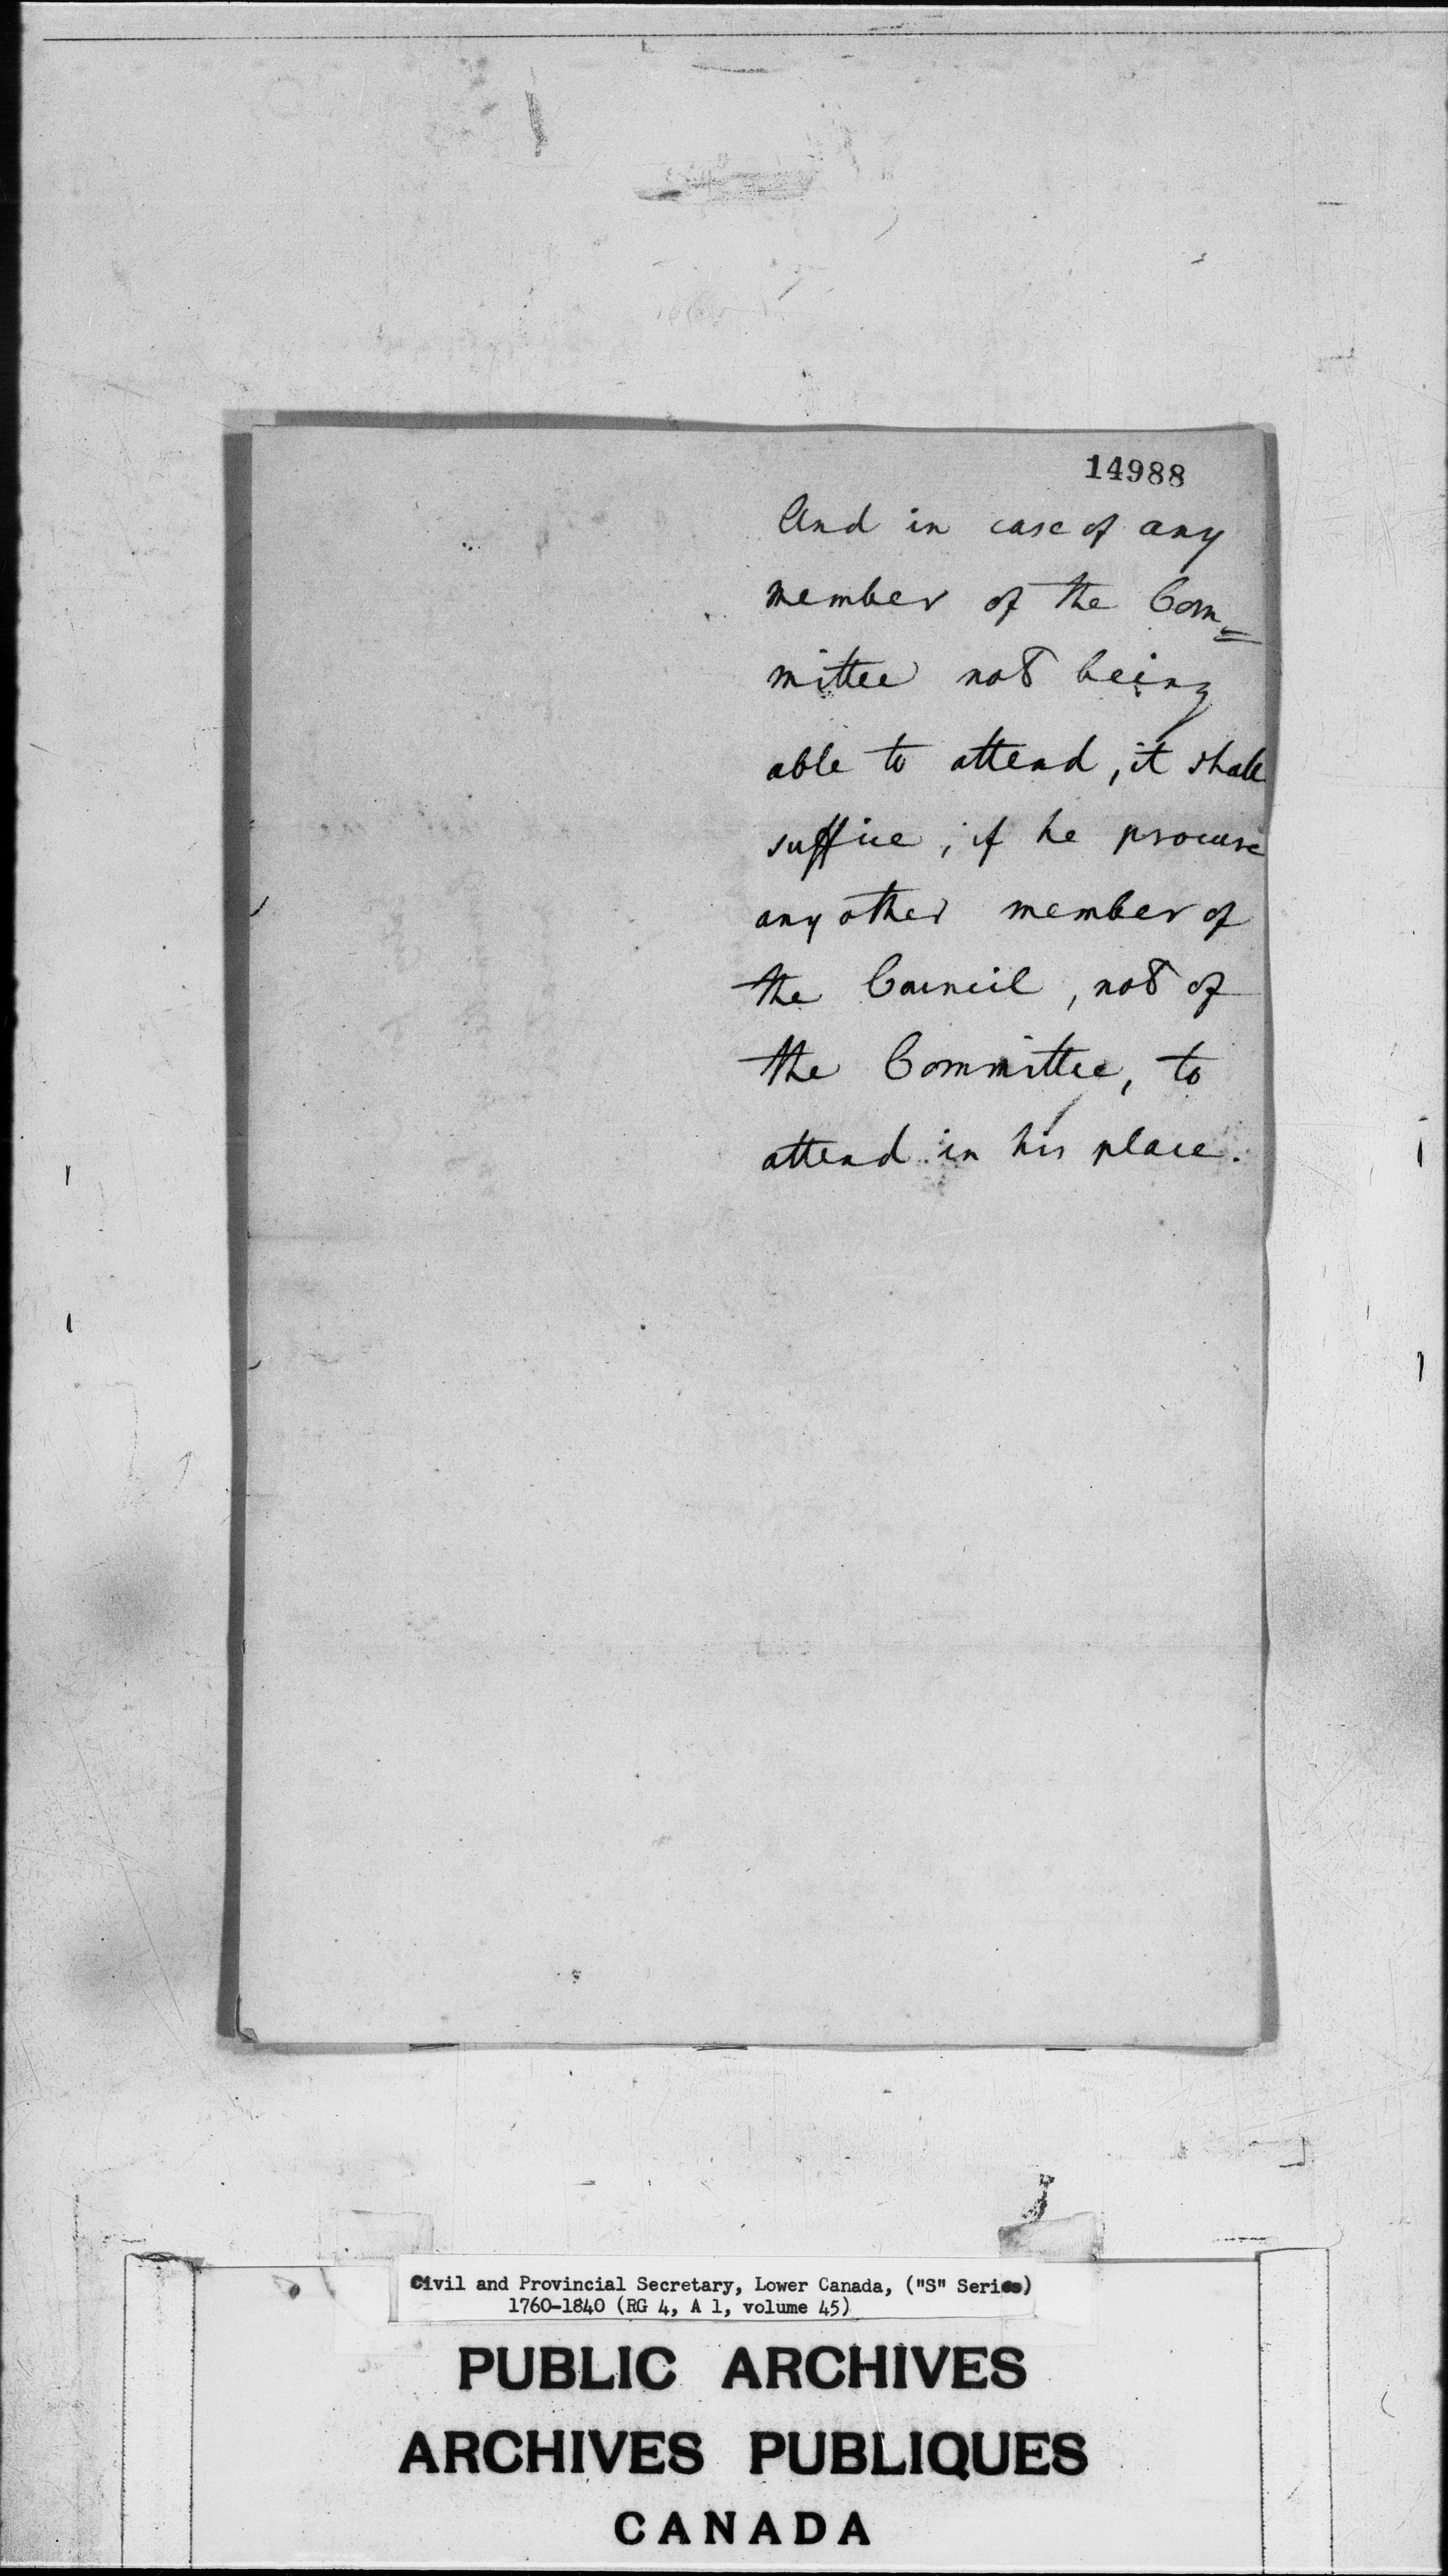 14988
And in case of any
member of the Com=
mittee not being
able to attend, it shall
suffice, if he procure
any other member of
the Council, not of
the Committee, to
attend in his place.
Civil and Provincial Secretary, Lower Canada, ("S" Series)
1760-1840 (RG 4, A 1, volume 45)
PUBLIC ARCHIVES
ARCHIVES PUBLIQUES
CANADA